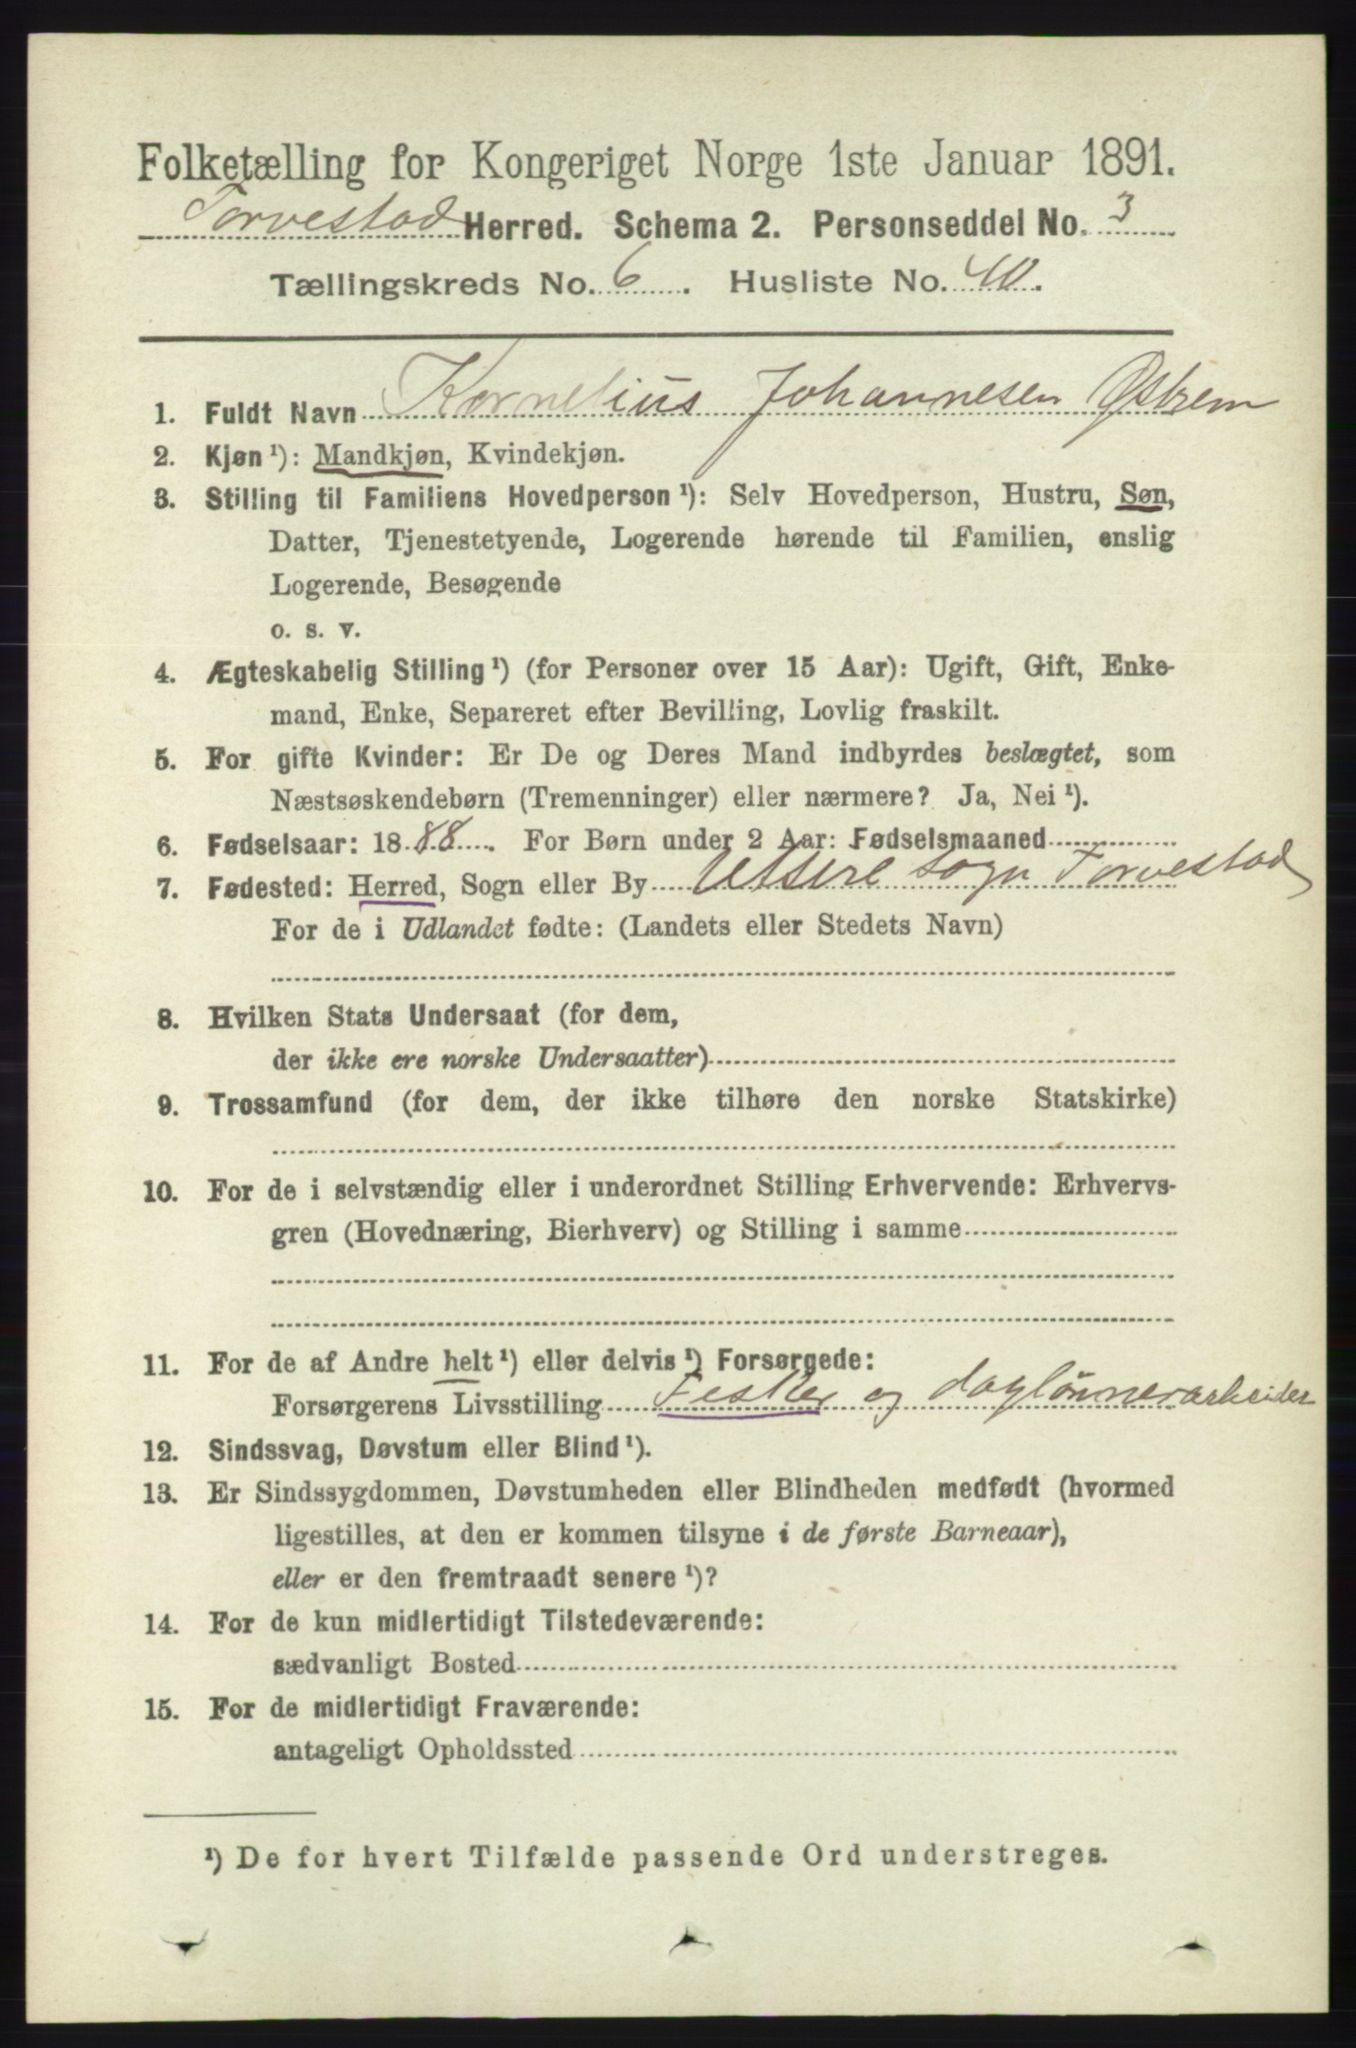 Folketælling for Kongeriget Norge 1ste Januar 1891.
Torvestad Herred. Schema 2. Personseddel No. 3
Tællingskreds No. 6. Husliste No. 40.
1. Fuldt Navn Kornelius Johannesen Østrem
2. Kjøn¹): Mandkjøn, Kvindekjøn.
3. Stilling til Familiens Hovedperson¹): Selv Hovedperson, Hustru, Søn,
Datter, Tjenestetyende, Logerende hørende til Familien, enslig
Logerende, Besøgende
o. s. v.
4. Ægteskabelig Stilling¹) (for Personer over 15 Aar): Ugift, Gift, Enke-
mand, Enke, Separeret efter Bevilling, Lovlig fraskilt.
5. For gifte Kvinder: Er De og Deres Mand indbyrdes beslægtet, som
Næstsøskendebørn (Tremenninger) eller nærmere? Ja, Nei¹).
6. Fødselsaar: 1888. For Børn under 2 Aar: Fødselsmaaned
7. Fødested: Herred, Sogn eller By Utsire sogn Torvestad
For de i Udlandet fødte: (Landets eller Stedets Navn)
8. Hvilken Stats Undersaat (for dem,
der ikke ere norske Undersaatter)
9. Trossamfund (for dem, der ikke tilhøre den norske Statskirke)
10. For de i selvstændig eller i underordnet Stilling Erhvervende: Erhvervs-
gren (Hovednæring, Bierhverv) og Stilling i samme
11. For de af Andre helt¹) eller delvis¹) Forsørgede:
Forsørgerens Livsstilling Fesker og daglønnerarbeider
12. Sindssvag, Døvstum eller Blind¹).
13. Er Sindssygdommen, Døvstumheden eller Blindheden medfødt (hvormed
ligestilles, at den er kommen tilsyne i de første Barneaar),
eller er den fremtraadt senere¹)?
14. For de kun midlertidigt Tilstedeværende:
sædvanligt Bosted
15. For de midlertidigt Fraværende:
antageligt Opholdssted
¹) De for hvert Tilfælde passende Ord understreges.